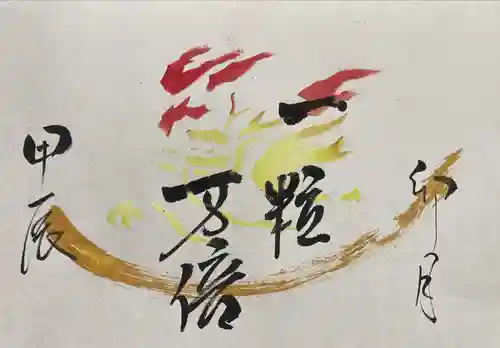 一粒
万倍
甲辰
卯月